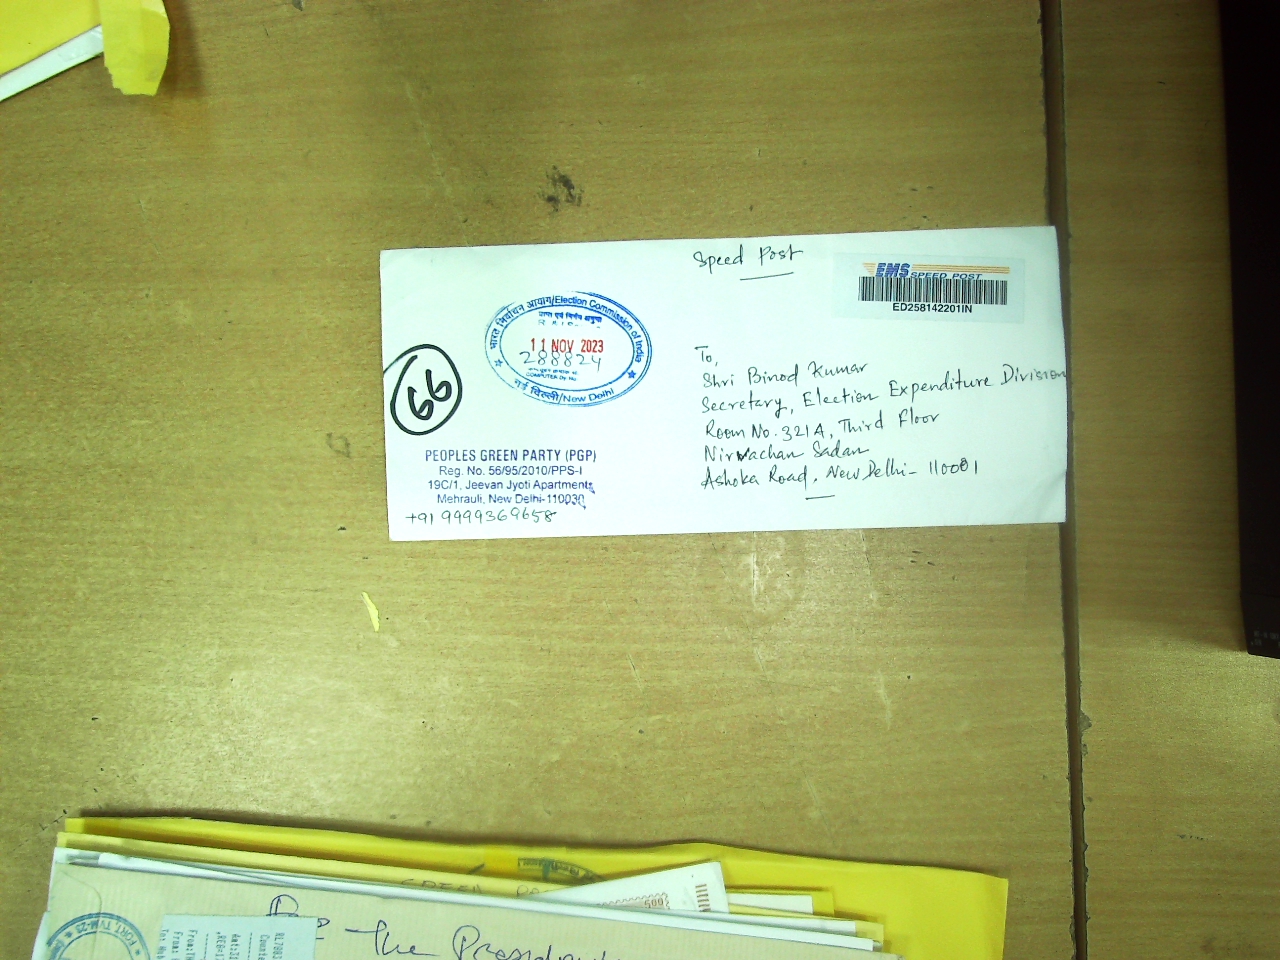 Speed Post
EMS SPEED POST
ED258142201IN
भारत निर्वाचन आयोग/Election Commission of India
11 NOV 2023
288824
COMPUTER Dy. No.
नई दिल्ली/New Delhi
66
To,
Shri Binod Kumar
Secretary, Election Expenditure Division
Room No. 321A, Third Floor
Nirvachan Sadan
Ashoka Road, New Delhi- 110001
PEOPLES GREEN PARTY (PGP)
Reg. No. 56/95/2010/PPS-I
19C/1, Jeevan Jyoti Apartments
Mehrauli, New Delhi-110030
+91 9999369658
GREEN
The
FORT, TVM-23